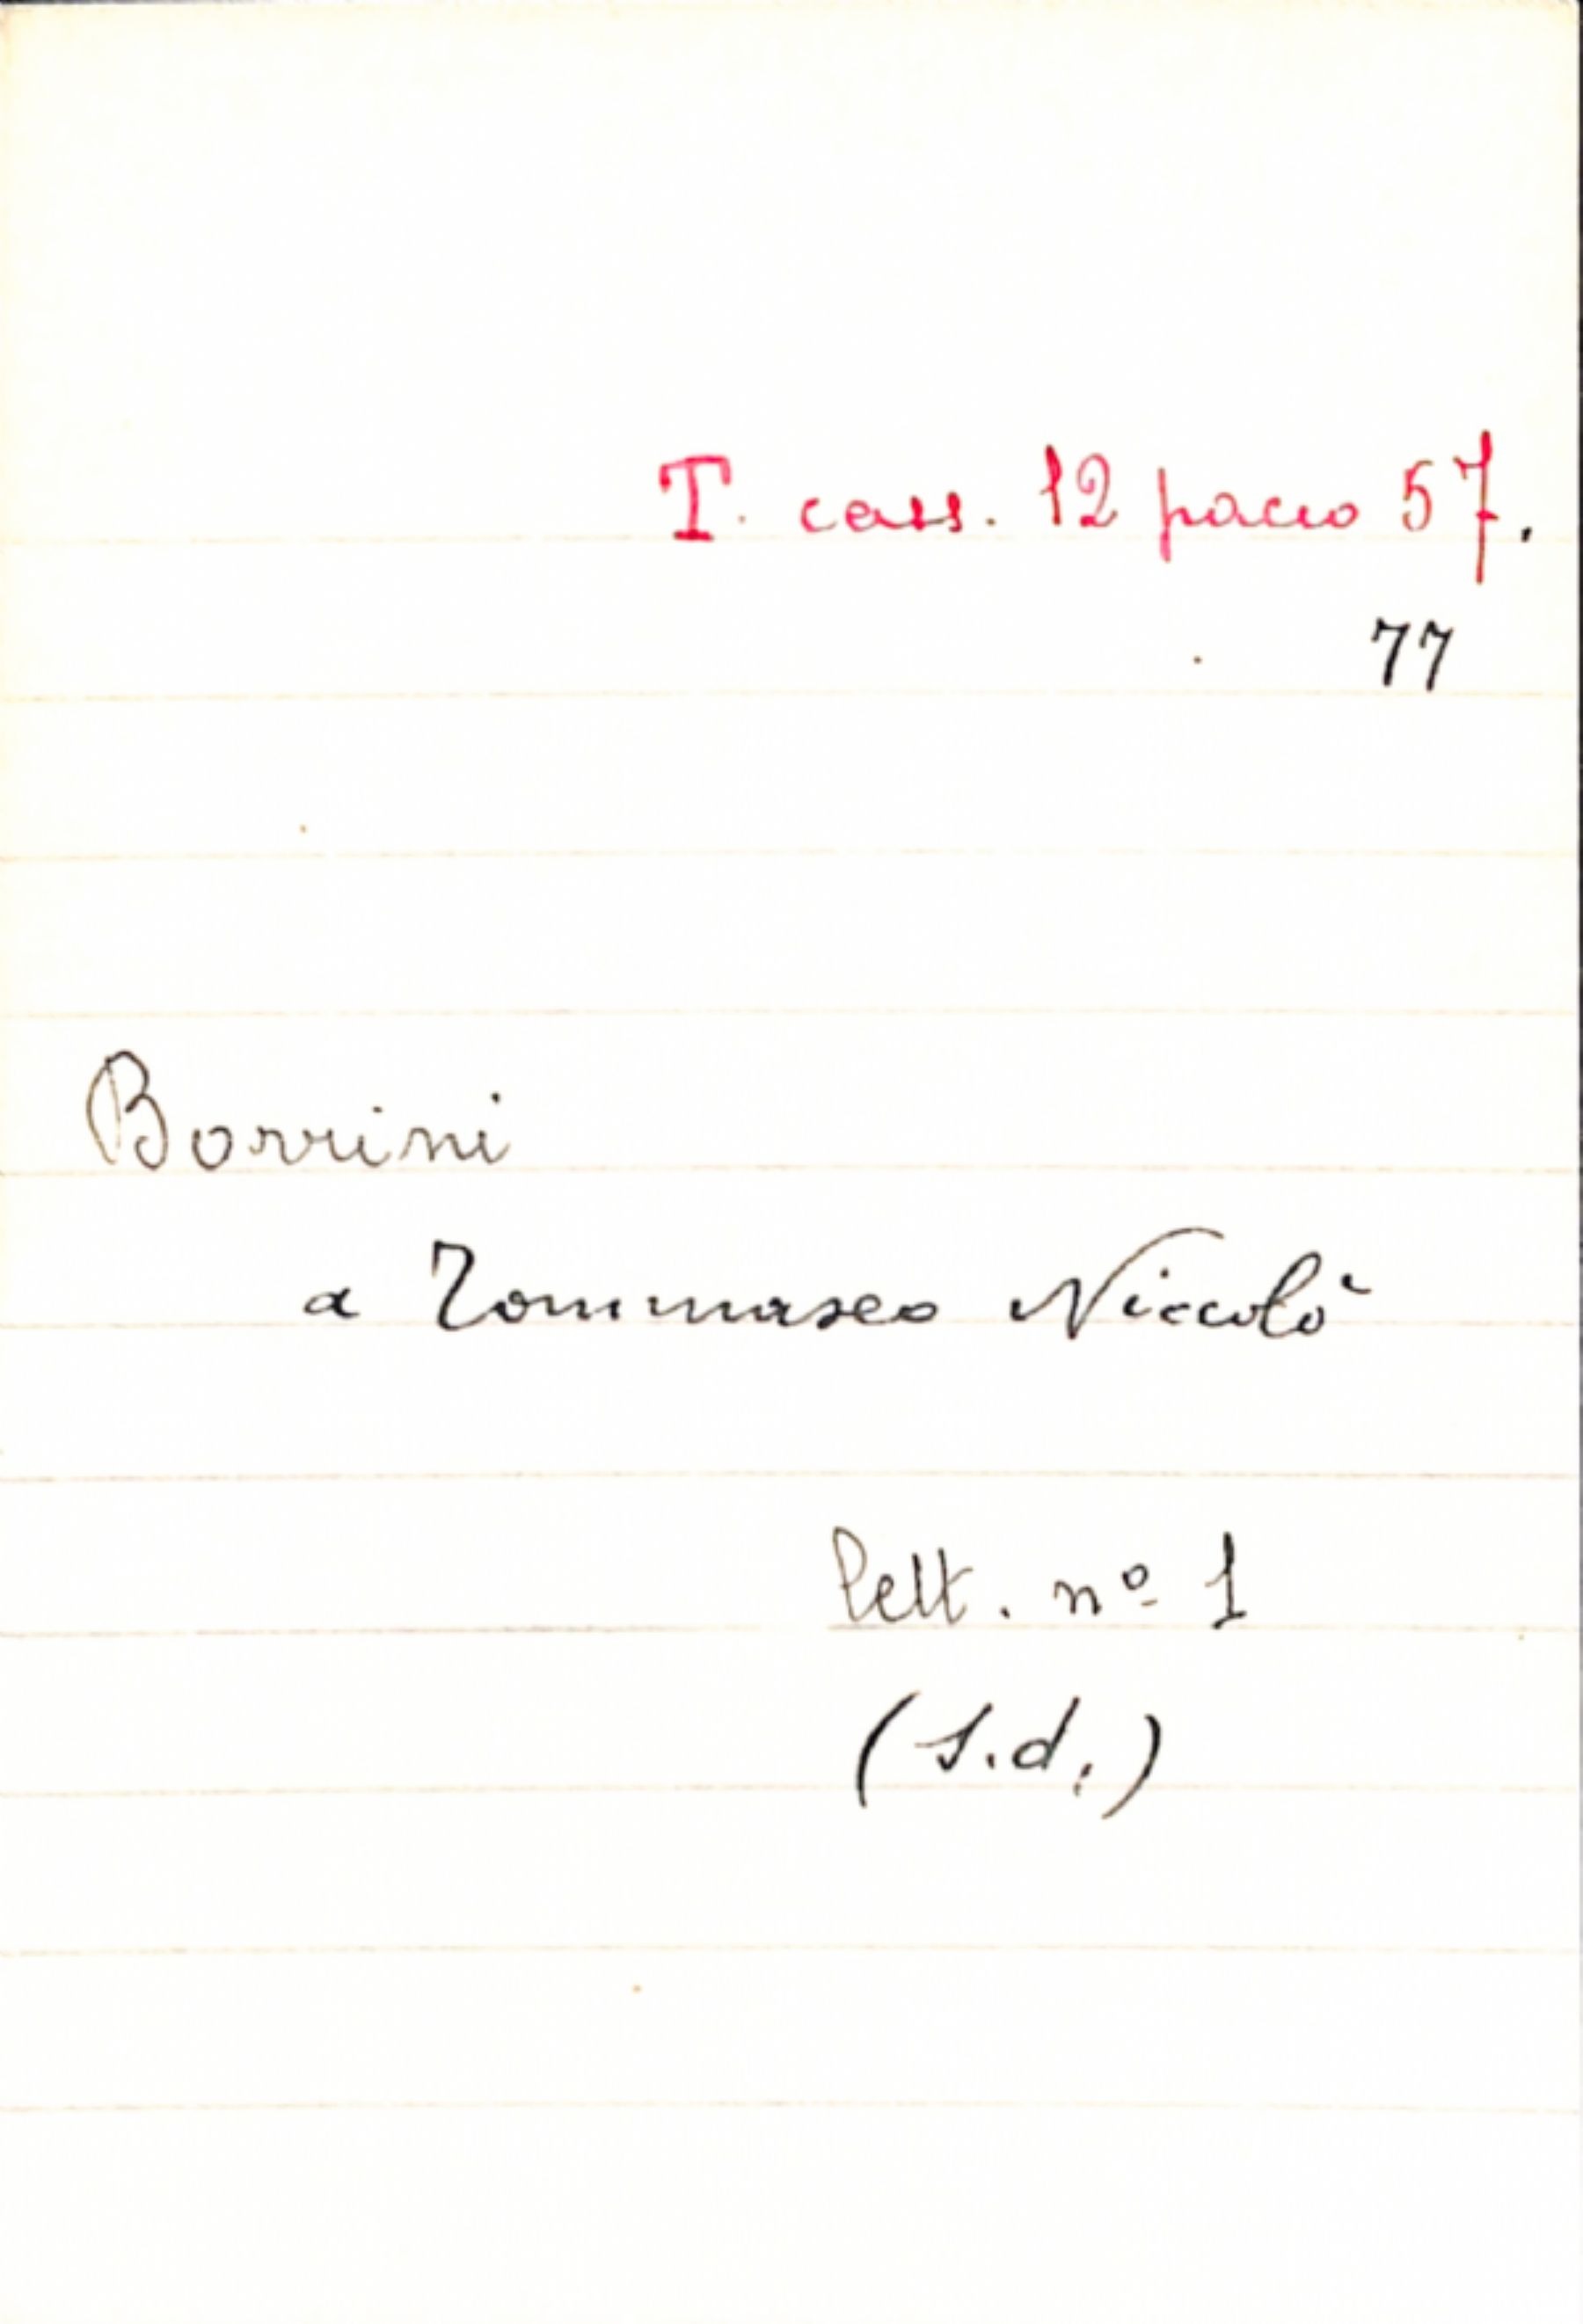 T. cass. 12 pacco 57.
77
Borrini
a Tommaseo Niccolò
lett. nº 1
(s.d.)